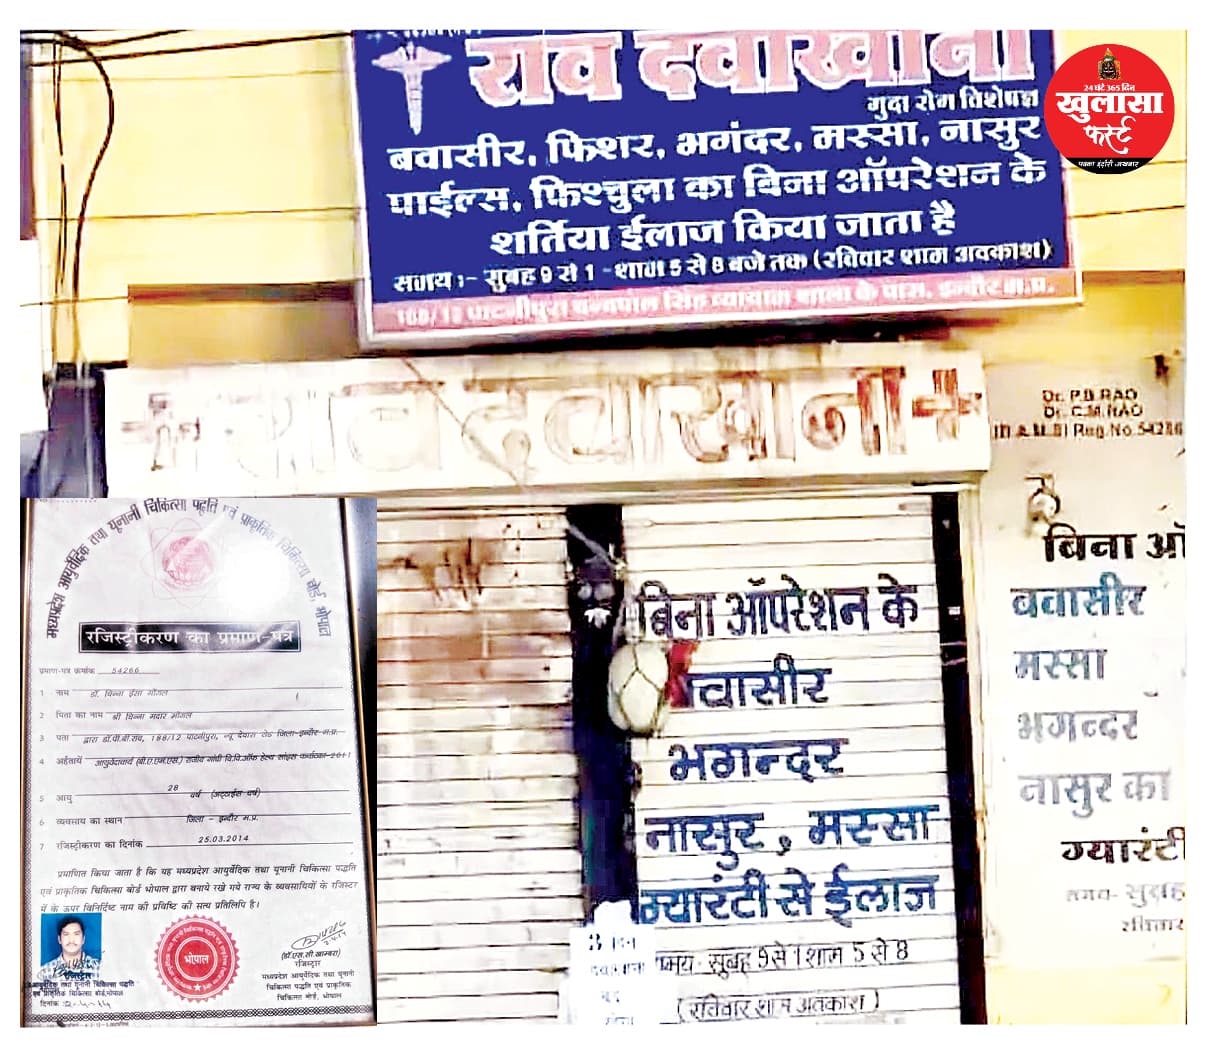 राव दवाखाना
गुदा रोग विशेषज्ञ
बवासीर, फिशर, भगंदर, मस्सा, नासुर
पाईल्स, फिश्चुला का बिना ऑपरेशन के
शर्तिया ईलाज किया जाता है
समय :- सुबह 9 से 1 - शाम 5 से 8 बजे तक (रविवार शाम अवकाश)
168/12 पाटनीपुरा चन्दपाल सिंह व्यायाम शाला के पास, इन्दौर म.प्र.
24 घंटे 365 दिन
खुलासा
फर्स्ट
राव दवाखाना
Dr. P.B.RAO
Dr. C.M.RAO
Reg.No.54266
बिना ऑ
बवासीर
मस्सा
भगन्दर
नासुर का
ग्यारंटी
समय- सुबह
रविवार
बिना ऑपरेशन के
बवासीर
भगन्दर
नासुर, मस्सा
ग्यारंटी से ईलाज
समय- सुबह 9 से 1 शाम 5 से 8
(रविवार शाम अवकाश)
3 दिन
दवाखाना
बंद
रहेगा
मध्यप्रदेश आयुर्वेदिक तथा यूनानी चिकित्सा पद्धति एवं प्राकृतिक चिकित्सा बोर्ड, भोपाल
रजिस्ट्रीकरण का प्रमाण-पत्र
प्रमाण-पत्र क्रमांक 54266
1 नाम डॉ. चिन्ना ईसा मोगल
2 पिता का नाम श्री चिन्ना मदार मोगल
3 पता द्वारा डॉ.पी.बी.राव, 188/12 पाटनीपुरा, न्यू देवास रोड जिला-इन्दौर म.प्र.
4 अर्हतायें आयुर्वेदाचार्य (बी.ए.एम.एस.) राजीव गांधी वि.वि.ऑफ हेल्थ साइंस कर्नाटका-2011
5 आयु 28 वर्ष (अट्ठाईस वर्ष)
6 व्यवसाय का स्थान जिला - इन्दौर म.प्र.
7 रजिस्ट्रीकरण का दिनांक 25.03.2014
प्रमाणित किया जाता है कि यह मध्यप्रदेश आयुर्वेदिक तथा यूनानी चिकित्सा पद्धति
एवं प्राकृतिक चिकित्सा बोर्ड भोपाल द्वारा बनाये रखे गये राज्य के व्यवसायियों के रजिस्टर
में के ऊपर विनिर्दिष्ट नाम की प्रविष्टि की सत्य प्रतिलिपि है।
भोपाल
(डॉ.एस.सी.खाम्बरा)
रजिस्ट्रार
मध्यप्रदेश आयुर्वेदिक तथा यूनानी
चिकित्सा पद्धति एवं प्राकृतिक
चिकित्सा बोर्ड, भोपाल
रजिस्ट्रार
आयुर्वेदिक तथा यूनानी चिकित्सा पद्धति
एवं प्राकृतिक चिकित्सा बोर्ड, भोपाल
दिनांक 2-4-14